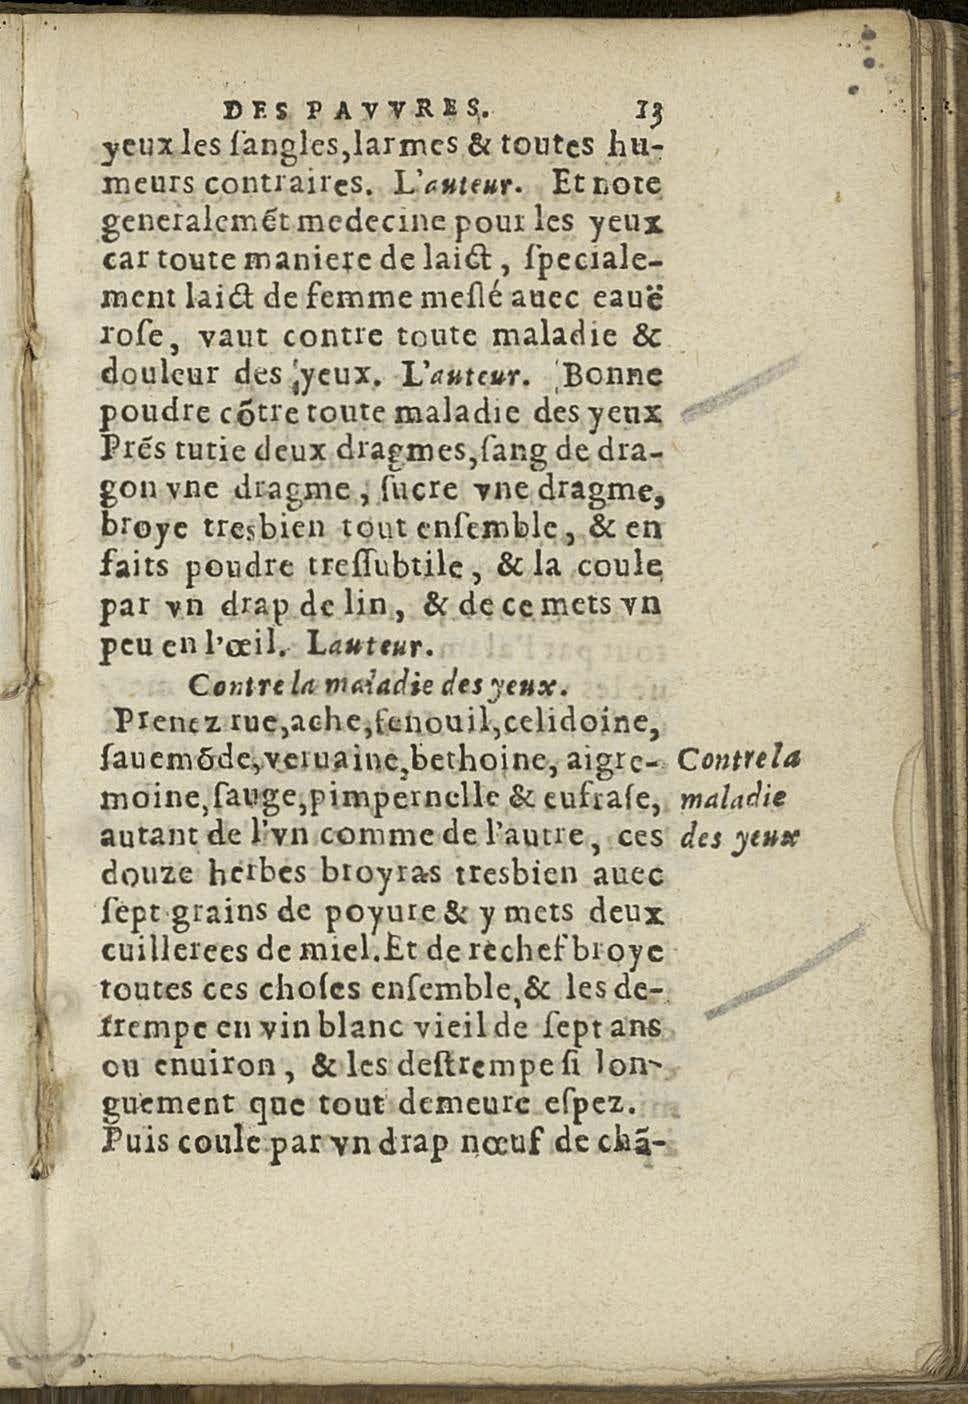 DES PAVVRES. 13
yeux les ſangles, larmes & toutes hu-
meurs contraires. L'auteur. Et note
generalemẽt medecine pour les yeux
car toute maniere de laict, ſpeciale-
ment laict de femme meſlé auec eauë
roſe, vaut contre toute maladie &
douleur des yeux. L'auteur. Bonne
poudre cõtre toute maladie des yeux
Prẽs tutie deux dragmes, ſang de dra-
gon vne dragme, ſucre vne dragme,
broye tresbien tout enſemble, & en
faits poudre treſſubtile, & la coule
par vn drap de lin, & de ce mets vn
peu en l'œil. Lauteur.
Contre la maladie des yeux.
Prenez rue, ache, fenouil, celidoine,
ſauemõde, veruaine, bethoine, aigre-
moine, ſauge, pimpernelle & eufraſe,
autant de l'vn comme de l'autre, ces
douze herbes broyras tresbien auec
ſept grains de poyure & y mets deux
cuillerees de miel. Et de rechef broye
toutes ces choſes enſemble, & les de-
trempe en vin blanc vieil de ſept ans
ou enuiron, & les deſtrempe ſi lon-
guement que tout demeure eſpez.
Puis coule par vn drap nœuf de chã-
Contre la
maladie
des yeux